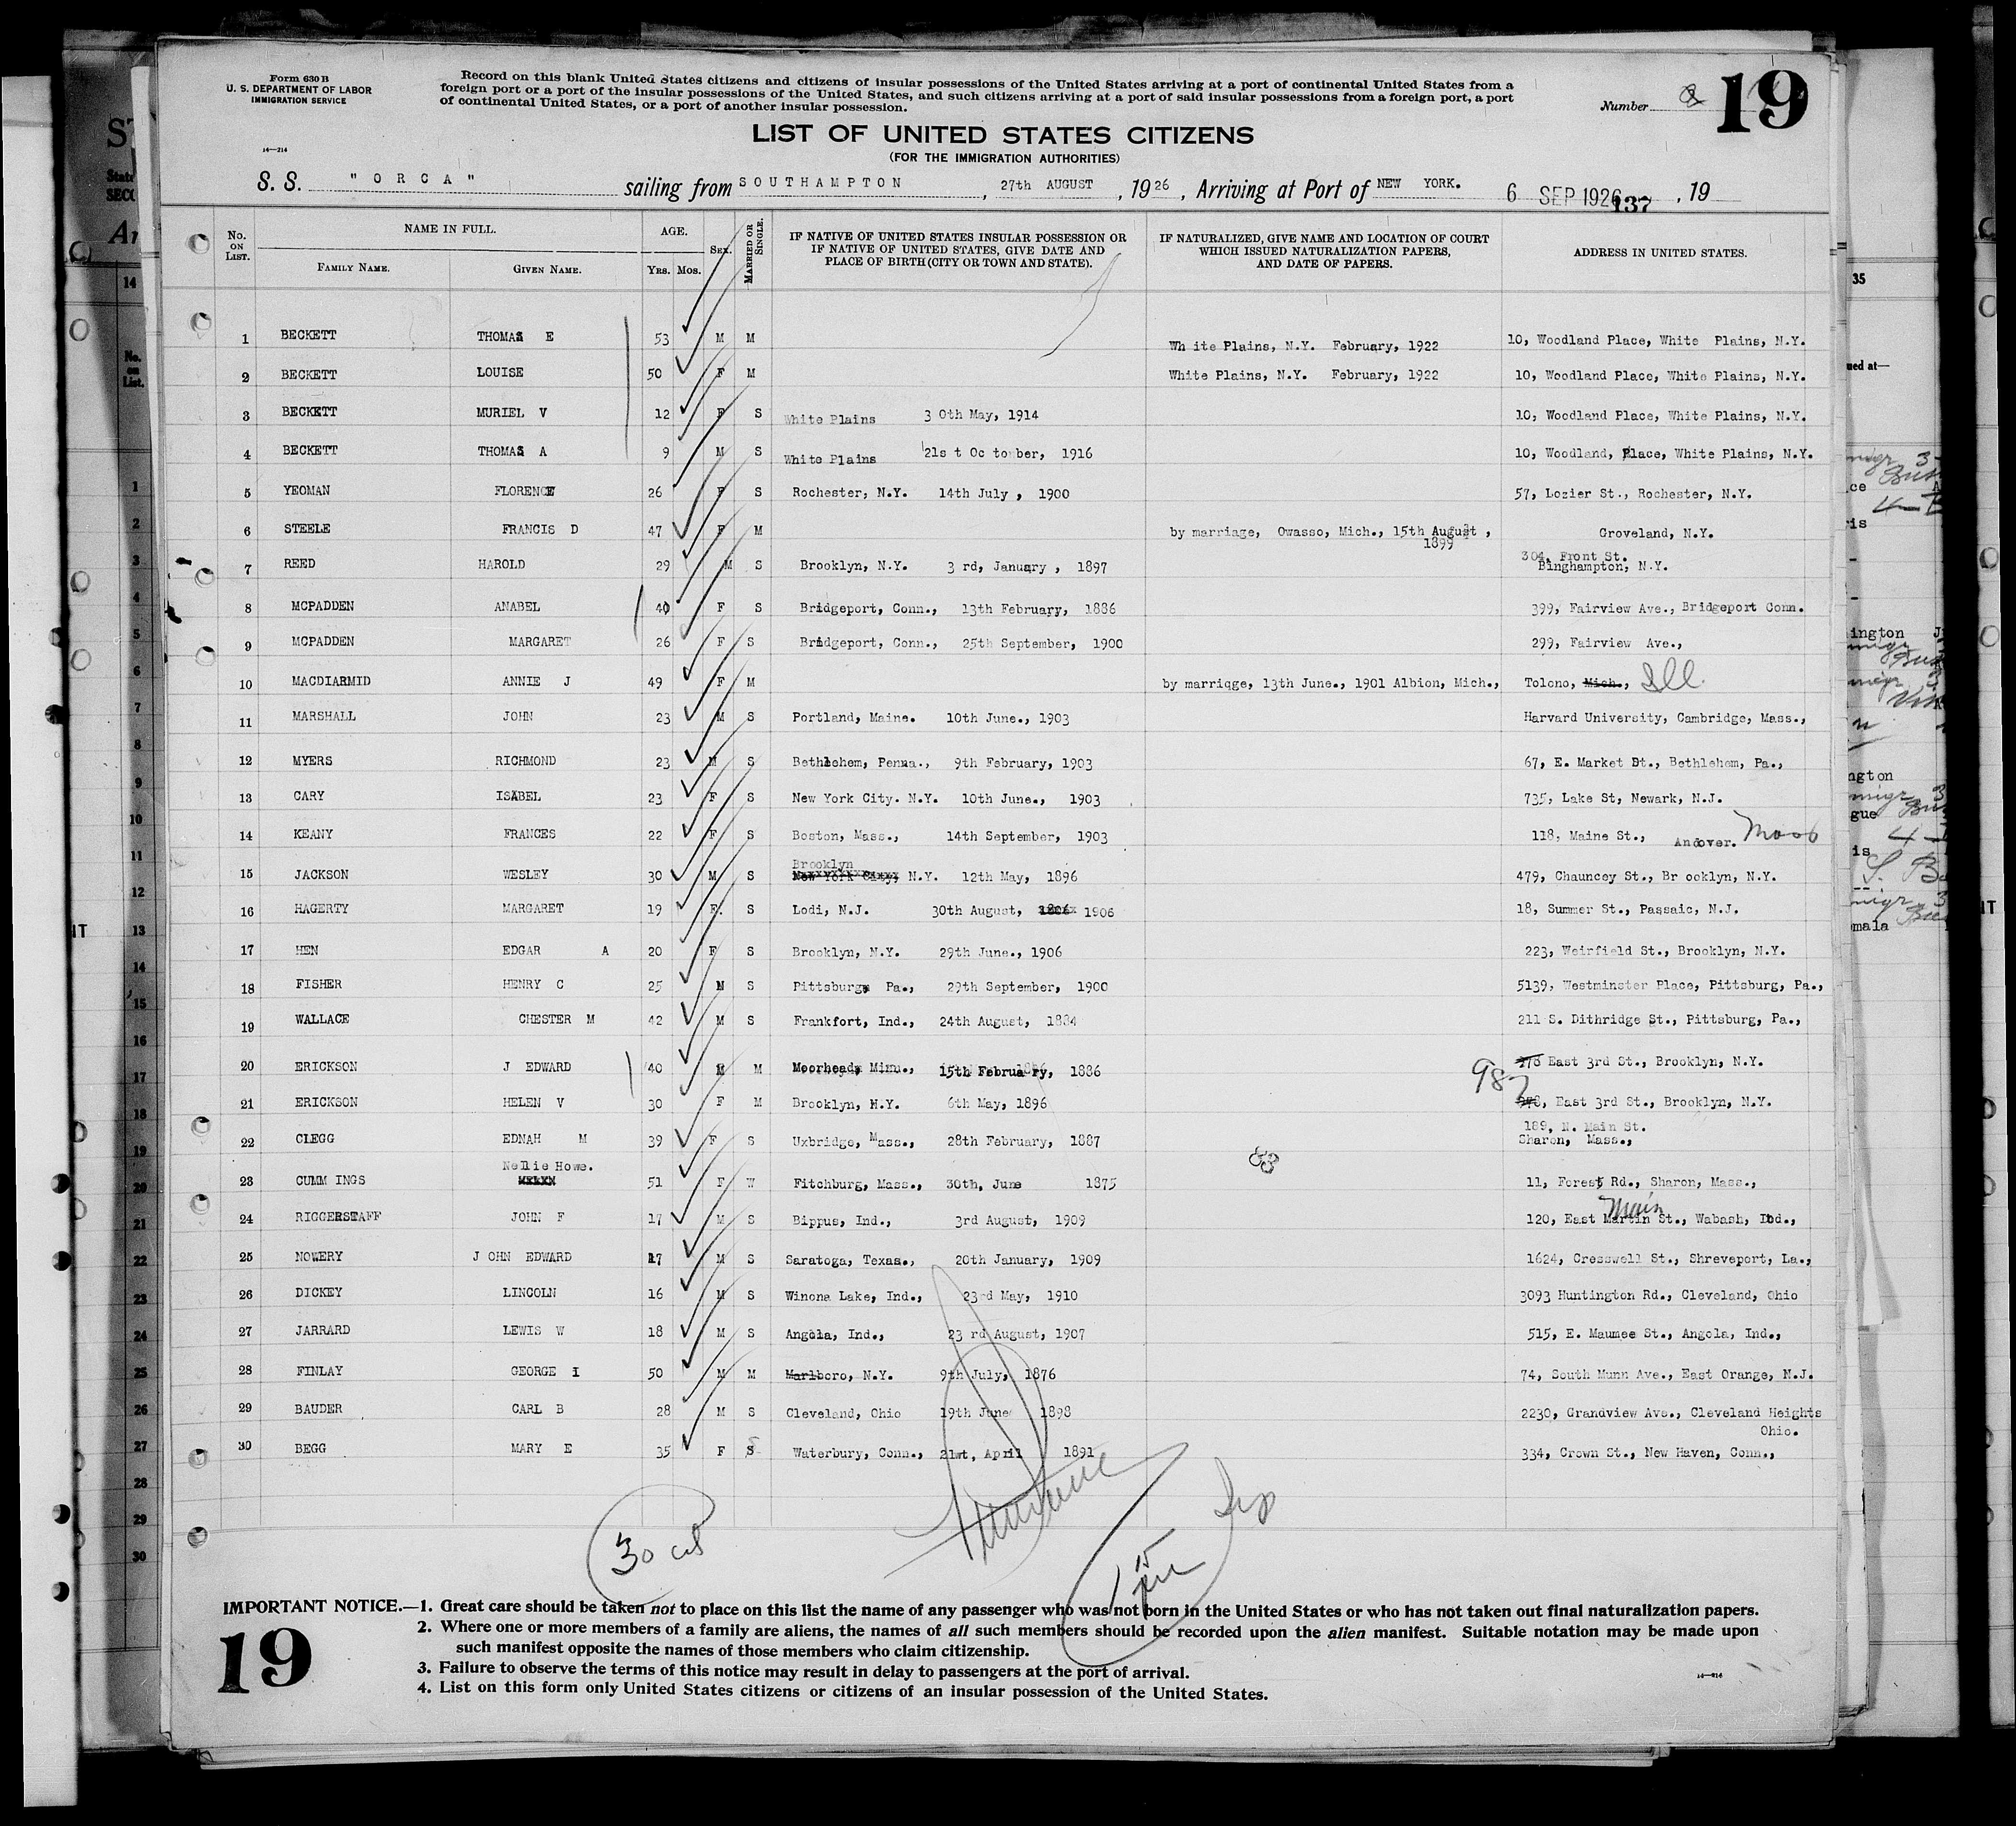 Form 630 B
U. S. DEPARTMENT OF LABOR
IMMIGRATION SERVICE
14—214
Record on this blank United States citizens and citizens of insular possessions of the United States arriving at a port of continental United States from a
foreign port or a port of the insular possessions of the United States, and such citizens arriving at a port of said insular possessions from a foreign port, a port
of continental United States, or a port of another insular possession.
Number 19
LIST OF UNITED STATES CITIZENS
(FOR THE IMMIGRATION AUTHORITIES)
S. S. "ORCA" sailing from SOUTHAMPTON, 27th AUGUST, 1926, Arriving at Port of NEW YORK. 6 SEP 1926 137, 19
No. ON LIST. NAME IN FULL. FAMILY NAME. GIVEN NAME. AGE. YRS. MOS. SEX. MARRIED OR SINGLE. IF NATIVE OF UNITED STATES INSULAR POSSESSION OR IF NATIVE OF UNITED STATES, GIVE DATE AND PLACE OF BIRTH (CITY OR TOWN AND STATE). IF NATURALIZED, GIVE NAME AND LOCATION OF COURT WHICH ISSUED NATURALIZATION PAPERS, AND DATE OF PAPERS. ADDRESS IN UNITED STATES.
1 BECKETT THOMAS E 53 M M Wh ite Plains, N.Y. February, 1922 10, Woodland Place, White Plains, N.Y.
2 BECKETT LOUISE 50 F M White Plains, N.Y. February, 1922 10, Woodland Place, White Plains, N.Y.
3 BECKETT MURIEL V 12 F S White Plains 3 0th May, 1914 10, Woodland Place, White Plains, N.Y.
4 BECKETT THOMAS A 9 M S White Plains 21s t Oc tober, 1916 10, Woodland, Place, White Plains, N.Y.
5 YEOMAN FLORENCE 26 F S Rochester, N.Y. 14th July, 1900 57, Lozier St., Rochester, N.Y.
6 STEELE FRANCIS D 47 F M by marriage, Owasso, Mich., 15th August, 1899 Groveland, N.Y.
7 REED HAROLD 29 M S Brooklyn, N.Y. 3 rd, January, 1897 304, Front St. Binghampton, N.Y.
8 MCPADDEN ANABEL 40 F S Bridgeport, Conn., 13th February, 1886 399, Fairview Ave., Bridgeport Conn.
9 MCPADDEN MARGARET 26 F S Bridgeport, Conn., 25th September, 1900 299, Fairview Ave.,
10 MACDIARMID ANNIE J 49 F M by marriqge, 13th June., 1901 Albion, Mich., Tolono, Mich., Ill
11 MARSHALL JOHN 23 M S Portland, Maine. 10th June., 1903 Harvard University, Cambridge, Mass.,
12 MYERS RICHMOND 23 M S Bethlehem, Penna., 9th February, 1903 67, E. Market St., Bethlehem, Pa.,
13 CARY ISABEL 23 F S New York City. N.Y. 10th June., 1903 735, Lake St, Newark, N.J.
14 KEANY FRANCES 22 F S Boston, Mass., 14th September, 1903 118, Maine St., Andover. Mass
15 JACKSON WESLEY 30 M S Brooklyn New York City, N.Y. 12th May, 1896 479, Chauncey St., Br ooklyn, N.Y.
16 HAGERTY MARGARET 19 F. S Lodi, N.J. 30th August, 1906 18, Summer St., Passaic, N.J.
17 HEN EDGAR A 20 F S Brooklyn, N.Y. 29th June., 1906 223, Weirfield St., Brooklyn, N.Y.
18 FISHER HENRY C 25 M S Pittsburg, Pa., 29th September, 1900 5139, Westminster Place, Pittsburg, Pa.,
19 WALLACE CHESTER M 42 M S Frankfort, Ind., 24th August, 1884 211 S. Dithridge St., Pittsburg, Pa.,
20 ERICKSON J EDWARD 40 M M Moorhead, Minn., 15th February, 1886 987 East 3rd St., Brooklyn, N.Y.
21 ERICKSON HELEN V 30 F M Brooklyn, N.Y. 6th May, 1896 East 3rd St., Brooklyn, N.Y.
22 CLEGG EDNAH M 39 F S Uxbridge, Mass., 28th February, 1887 189, N. Main St. Sharon, Mass.,
23 CUMM INGS Nellie Howe. 51 F W Fitchburg, Mass., 30th, June 1875 11, Forest Rd., Sharon, Mass.,
24 RIGGERSTAFF JOHN F 17 M S Bippus, Ind., 3rd August, 1909 120, East Martin Main St., Wabash, Ind.,
25 NOWERY J OHN EDWARD 17 M S Saratoga, Texas., 20th January, 1909 1624, Cresswell St., Shreveport, La.,
26 DICKEY LINCOLN 16 M S Winona Lake, Ind., 23rd May, 1910 3093 Huntington Rd., Cleveland, Ohio
27 JARRARD LEWIS W 18 M S Angola, Ind., 23 rd August, 1907 515, E. Maumee St., Angola, Ind.,
28 FINLAY GEORGE I 50 M M Marlboro, N.Y. 9th July, 1876 74, South Munn Ave., East Orange, N.J.
29 BAUDER CARL B 28 M S Cleveland, Ohio 19th June 1898 2230, Grandview Ave., Cleveland Heights Ohio.
30 BEGG MARY E 35 F S Waterbury, Conn., 21st, April 1891 334, Crown St., New Haven, Conn.,
30
IMPORTANT NOTICE.—1. Great care should be taken not to place on this list the name of any passenger who was not born in the United States or who has not taken out final naturalization papers.
2. Where one or more members of a family are aliens, the names of all such members should be recorded upon the alien manifest. Suitable notation may be made upon
such manifest opposite the names of those members who claim citizenship.
3. Failure to observe the terms of this notice may result in delay to passengers at the port of arrival.
4. List on this form only United States citizens or citizens of an insular possession of the United States.
19
14—214